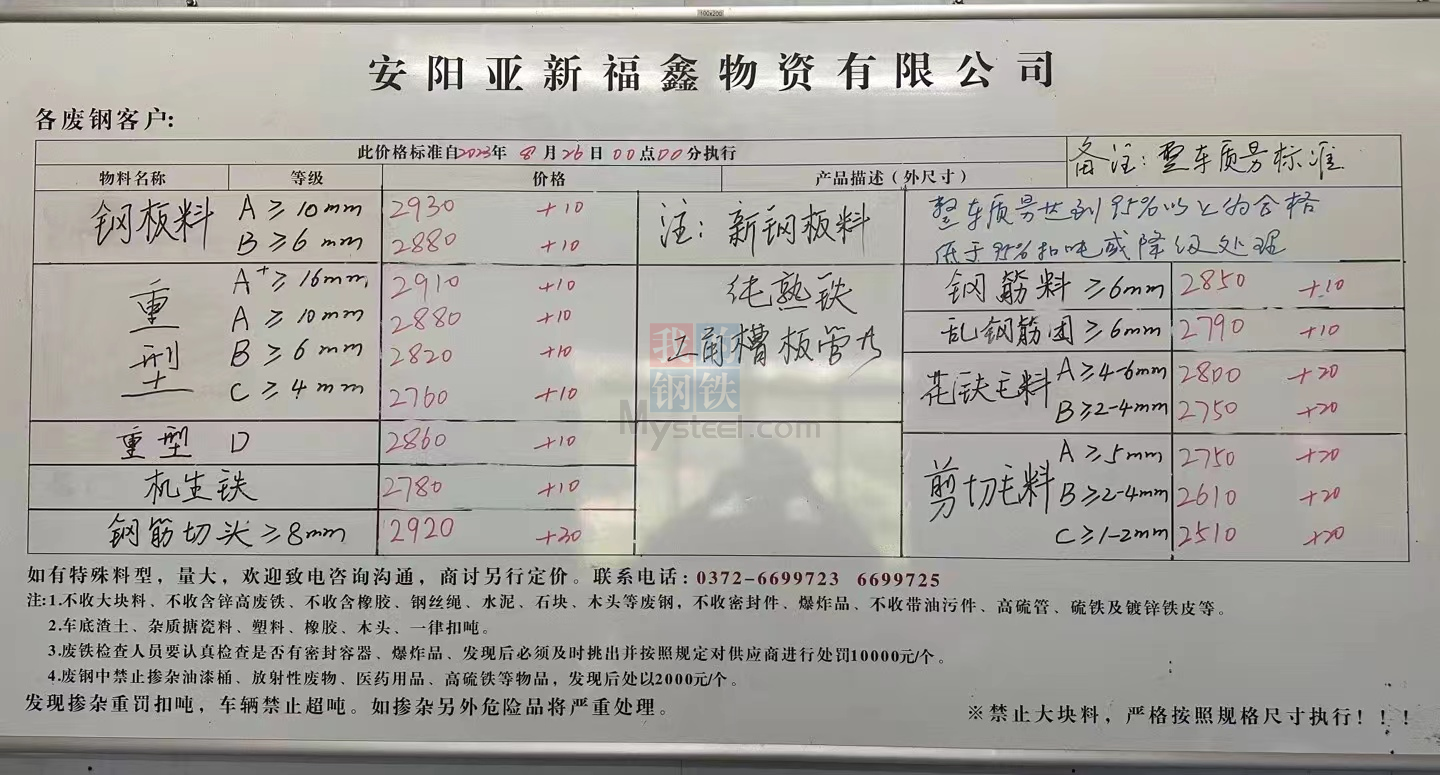 100x200
安阳亚新福鑫物资有限公司
各废钢客户:
此价格标准自2023年 8月26日 00点00分执行
备注: 整车质量标准
物料名称 等级 价格 产品描述（外尺寸）
钢板料 A ≥10mm 2930 +10
B ≥6mm 2880 +10
注: 新钢板料
整车质量达到95%以上为合格
低于95%扣吨或降级处理
重型 A+ ≥16mm 2910 +10
A ≥10mm 2880 +10
B ≥6mm 2820 +10
C ≥4mm 2760 +10
纯熟铁
工角槽板管头
重型 D 2860 +10
机生铁 2780 +10
钢筋切头 ≥8mm 2920 +30
钢筋料 ≥6mm 2850 +10
乱钢筋团 ≥6mm 2790 +10
花铁毛料 A≥4-6mm 2800 +20
B≥2-4mm 2750 +20
剪切毛料 A ≥5mm 2750 +20
B≥2-4mm 2610 +20
C≥1-2mm 2510 +20
我的钢铁
Mysteel.com
如有特殊料型，量大，欢迎致电咨询沟通，商讨另行定价。联系电话: 0372-6699723 6699725
注:1.不收大块料、不收含锌高废铁、不收含橡胶、钢丝绳、水泥、石块、木头等废钢，不收密封件、爆炸品、不收带油污件、高硫管、硫铁及镀锌铁皮等。
2.车底渣土、杂质搪瓷料、塑料、橡胶、木头、一律扣吨。
3.废铁检查人员要认真检查是否有密封容器、爆炸品、发现后必须及时挑出并按照规定对供应商进行处罚10000元/个。
4.废钢中禁止掺杂油漆桶、放射性废物、医药用品、高硫铁等物品，发现后处以2000元/个。
发现掺杂重罚扣吨，车辆禁止超吨。如掺杂另外危险品将严重处理。
※禁止大块料，严格按照规格尺寸执行！！！